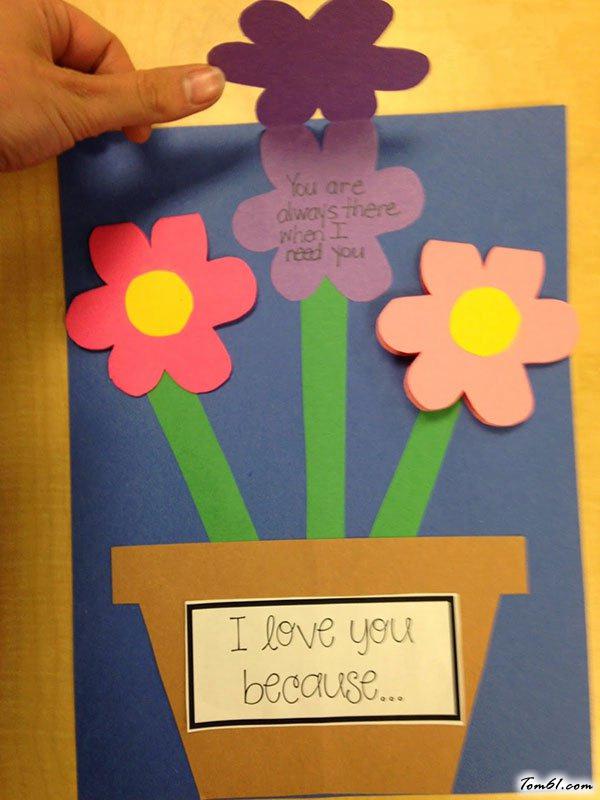 You are
always there
when I
need you
I love you
because...
Tom61.com